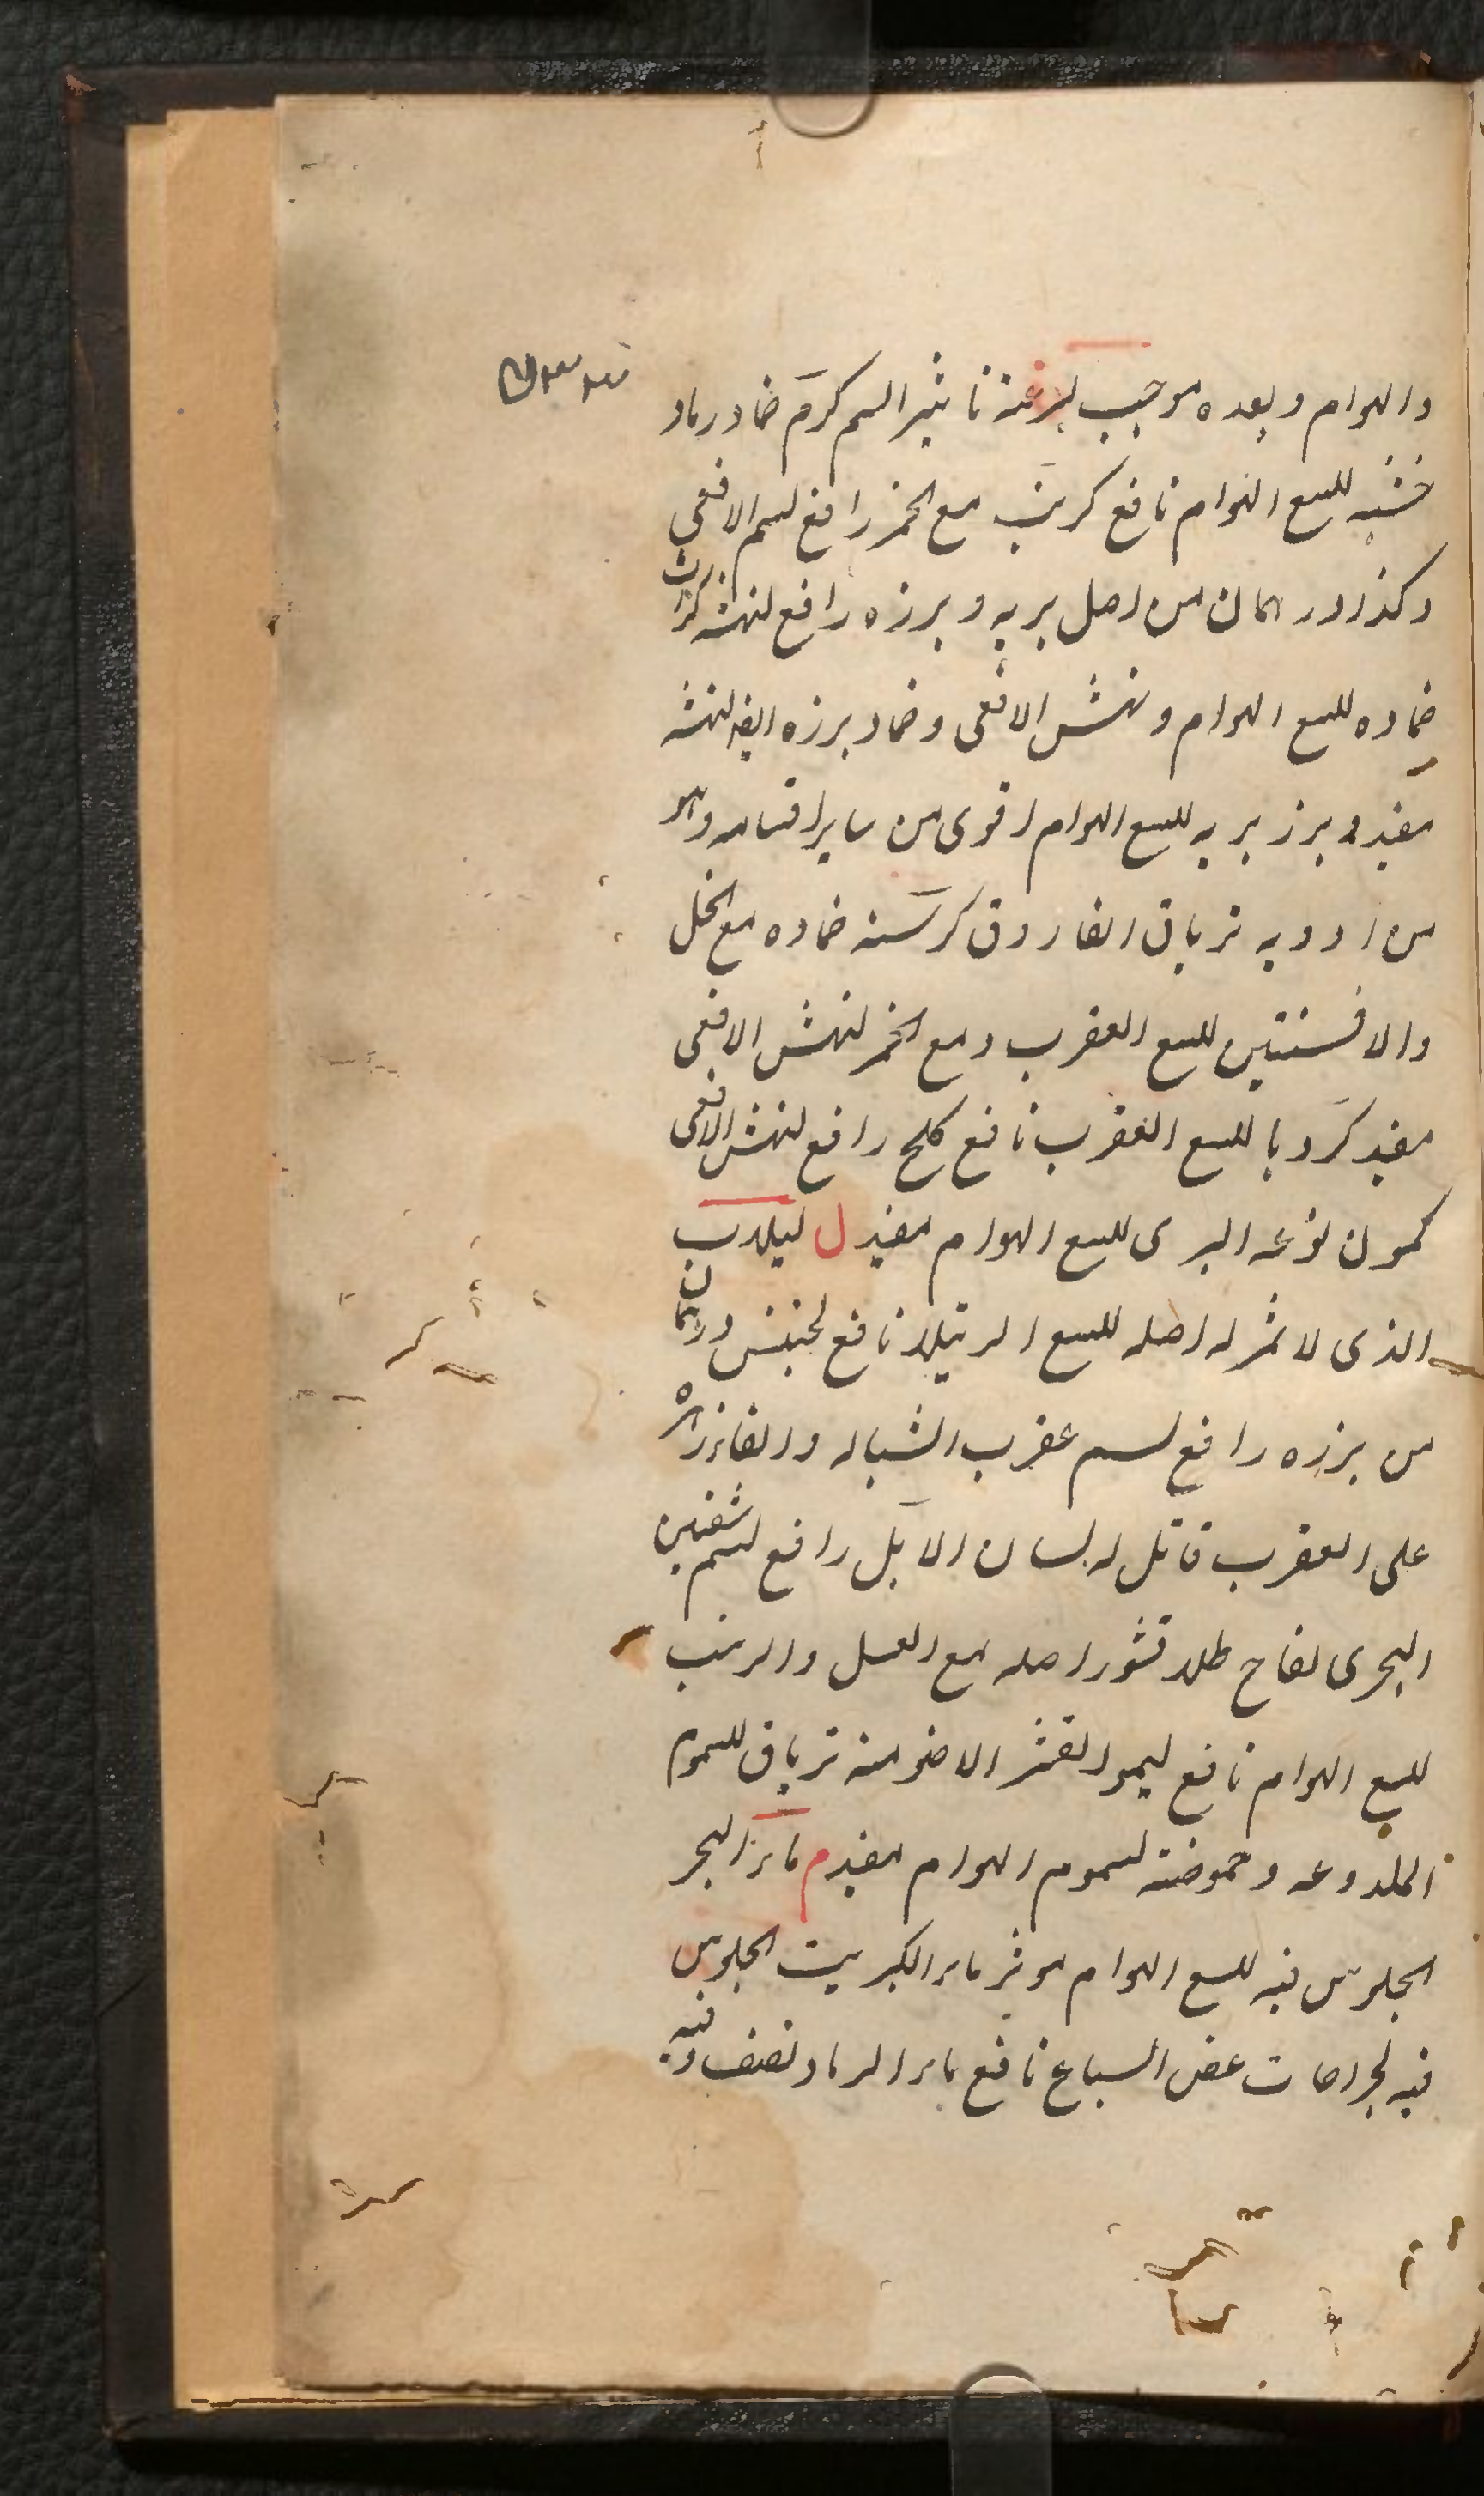 والهوام وبعده موجب لسرعة تاثير السم كرم ضماد رماد
خشبه للسع الهوام نافع كرنب مع الخمر رافع لسم الافعى
وكذا درهمان من اصل بريه وبرزه رافع لنهشه كراث
ضماده للسع الهوام ونهش الافعى وضماد برزه ايضا لنهشه
مفيد وبرز بريه للسع الهوام اقوى من ساير اقسامه وهو
من ادويه ترياق الفاروق كرسنه ضماده مع الخل
والافسنتين للسع العقرب ومع الخمر لنهش الافعى
مفيد كرويا للسع العقرب نافع كلخ رافع لنهش الافعى
كمون نوعه البرى للسع الهوام مفيد ل لبلاب
الذى لا ثمر له اصله للسع الرتيلا نافع درهمان
من برزه رافع لسم عقرب الشباله والقا زهره
على العقرب قاتل له لسان الابل رافع لسم شفنين
البحرى لفاح طلاء قشور اصله مع العسل والزيت
للسع الهوام نافع ليمو القشر الاصفر منه ترياق للسموم
الملدوعه وحموضته لسموم الهوام مفيد م ماء البحر
الجلوس فيه للسع الهوام موثر ماء الكبريت الجلوس
فيه لجراحات عض السباع نافع ماء الرماد نصف وقيه